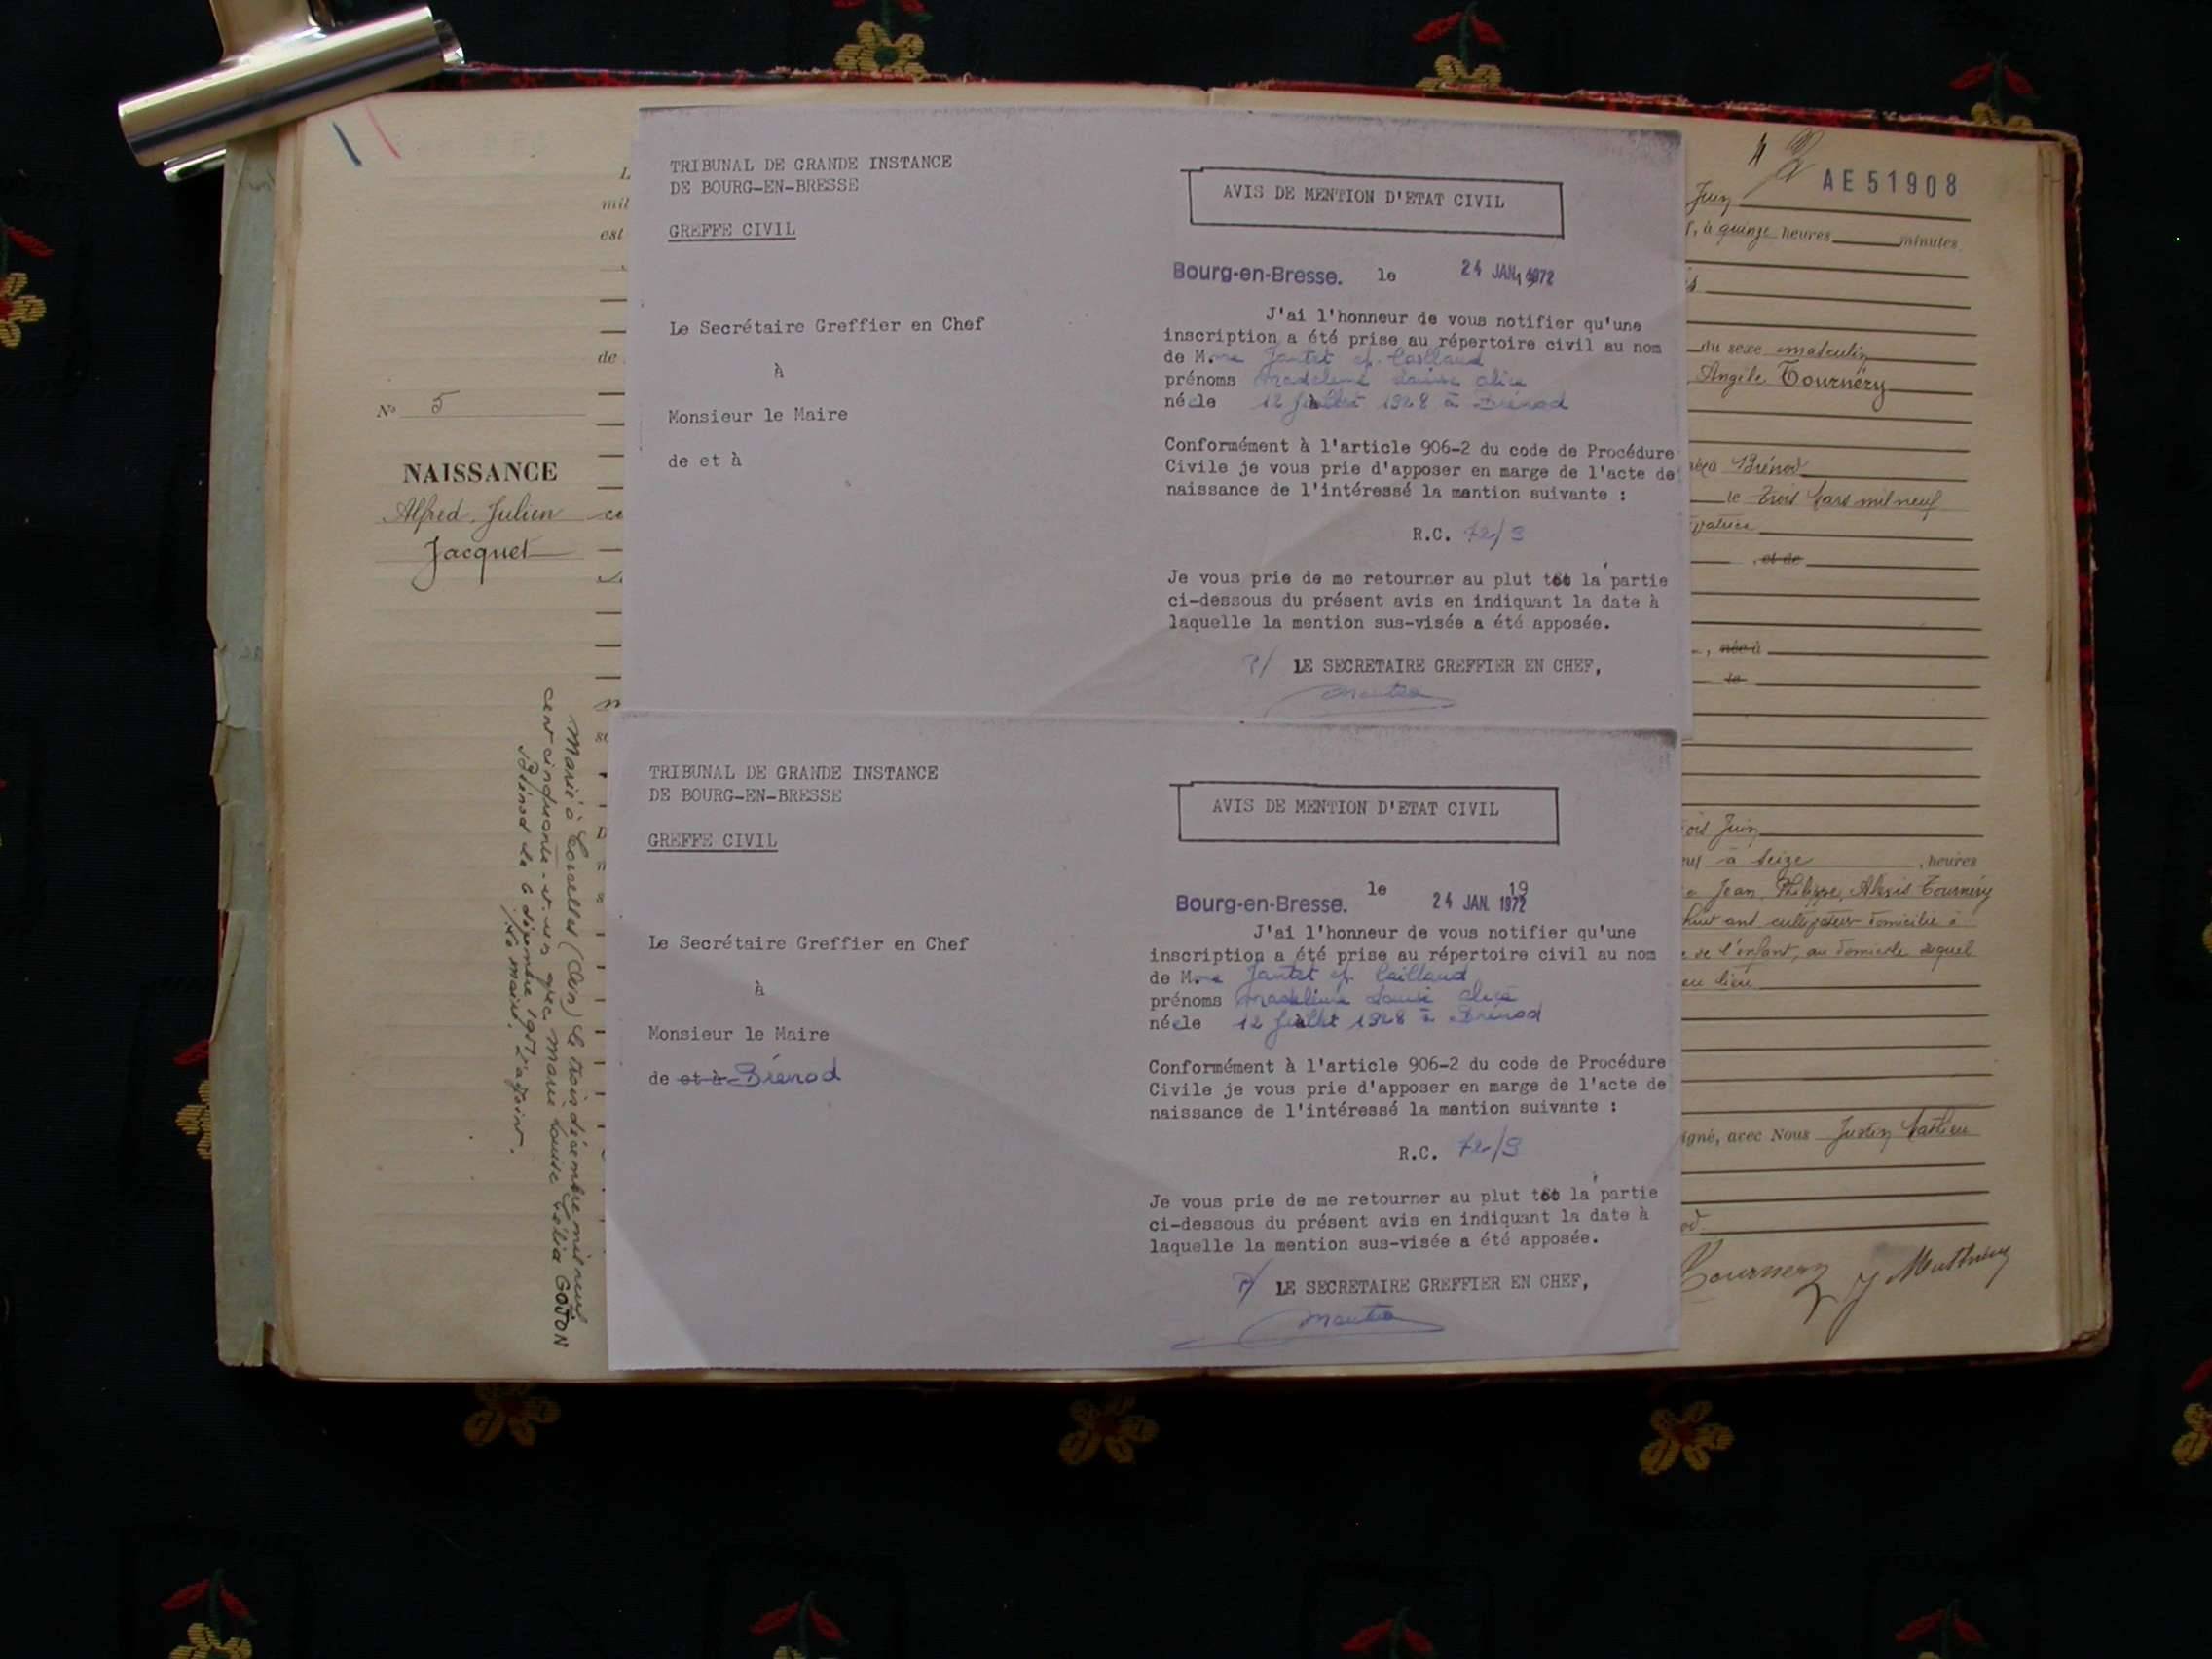 N° 5
NAISSANCE
Alfred Julien
Jacquet
Marié à (Ain) le trois décembre mil neuf
cent cinquante-et-un avec Marie Louise GOJON
Brénod le 6 décembre 1951
Le maire. L'adjoint.
L
mil
est
de
TRIBUNAL DE GRANDE INSTANCE
DE BOURG-EN-BRESSE
GREFFE CIVIL
Le Secrétaire Greffier en Chef
à
Monsieur le Maire
de et à
AVIS DE MENTION D'ETAT CIVIL
Bourg-en-Bresse. le 24 JAN. 1972
J'ai l'honneur de vous notifier qu'une
inscription a été prise au répertoire civil au nom
de Mme Jantet ep. Caillaud
prénoms Madeleine Louise Alice
née le 12 Juillet 1928 à Brénod
Conformément à l'article 906-2 du code de Procédure
Civile je vous prie d'apposer en marge de l'acte de
naissance de l'intéressé la mention suivante :
R.C. 72/3
Je vous prie de me retourner au plut tôt la partie
ci-dessous du présent avis en indiquant la date à
laquelle la mention sus-visée a été apposée.
P/ LE SECRETAIRE GREFFIER EN CHEF,
TRIBUNAL DE GRANDE INSTANCE
DE BOURG-EN-BRESSE
GREFFE CIVIL
Le Secrétaire Greffier en Chef
à
Monsieur le Maire
de et à Brénod
AVIS DE MENTION D'ETAT CIVIL
Bourg-en-Bresse. le 24 JAN. 1972 19
J'ai l'honneur de vous notifier qu'une
inscription a été prise au répertoire civil au nom
de Mme Jantet ep. Caillaud
prénoms Madeleine Louise Alice
née le 12 Juillet 1928 à Brénod
Conformément à l'article 906-2 du code de Procédure
Civile je vous prie d'apposer en marge de l'acte de
naissance de l'intéressé la mention suivante :
R.C. 72/3
Je vous prie de me retourner au plut tôt la partie
ci-dessous du présent avis en indiquant la date à
laquelle la mention sus-visée a été apposée.
P/ LE SECRETAIRE GREFFIER EN CHEF,
AE51908
Juin
, à quinze heures minutes
du sexe masculin
Angèle Tournéry
à Brénod
le trois Mars mil neuf
, et de
, née à
le
Juin
à seize , heures
Jean, Philippe, Alexis Tournéry
huit ans cultivateur domicilié à
de l'enfant, au domicile duquel
eu lieu
igné, avec Nous Justin Mathieu
Tournery J Mathieu